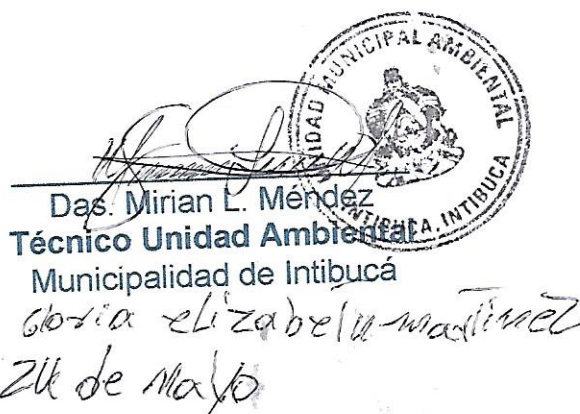 UNIDAD MUNICIPAL AMBIENTAL
INTIBUCA, INTIBUCA
Das. Mirian L. Méndez
Técnico Unidad Ambiental
Municipalidad de Intibucá
Gloria elizabeth martinez
24 de Mayo